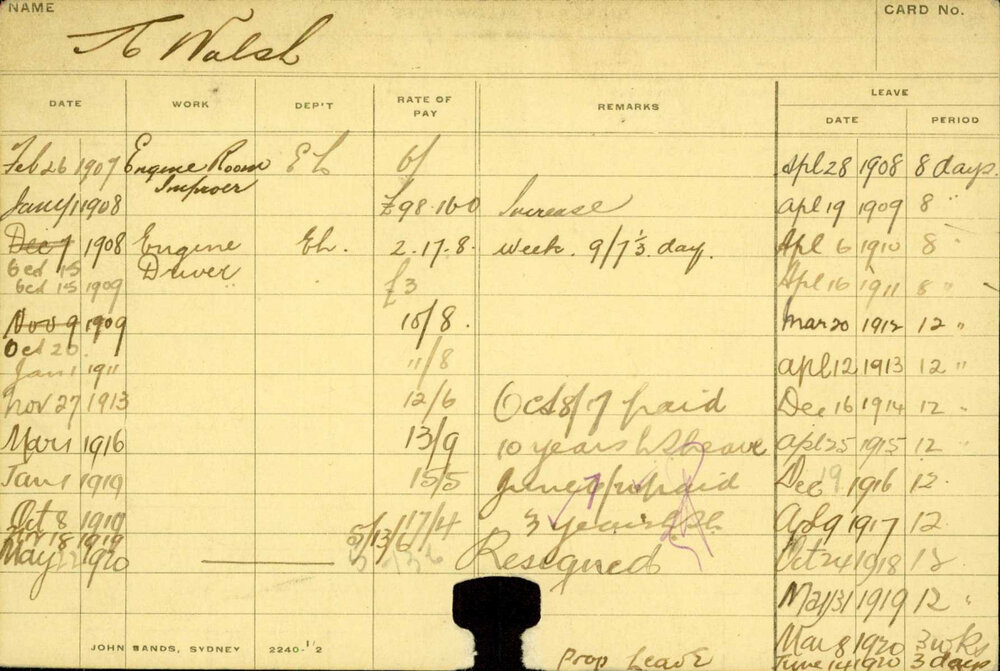 NAME
CARD No.
Walsh
DATE WORK DEP'T RATE OF PAY REMARKS LEAVE
DATE PERIOD
Feb 26 1907 Engine Room EL 6/ Apl 28 1908 8 days.
Improer
Jany 1 1908 £98.16.0 Increase Apl 19 1909 8 "
Dec 7 1908 Engine EL. 2.17.8. week. 9/7 1/3 day. Apl 6 1910 8 "
Oct 15 Driver
Oct 15 1909 £3 Apl 16 1911 8 "
Nov 9 1909 10/8. Mar 20 1912 12 "
Oct 20.
Jan 1 1911 11/8 Apl 12 1913 12 "
Nov 27 1913 12/6 Oct 8/7 paid Dec 16 1914 12 "
Mar 1 1916 13/9 10 years Apl 25 1915 12 "
Jan 1 1919 15/5 paid Dec 19 1916 12.
Oct 8 1910 17/4 3 years Apl 9 1917 12
18 1919 5/13/6
May 22 1920 Resigned Oct 24 1918 12
May 31 1919 12 "
Mar 8 1920 3 wks
JOHN SANDS, SYDNEY 2240-1/2 Prop Leave June 14 1920 3 days